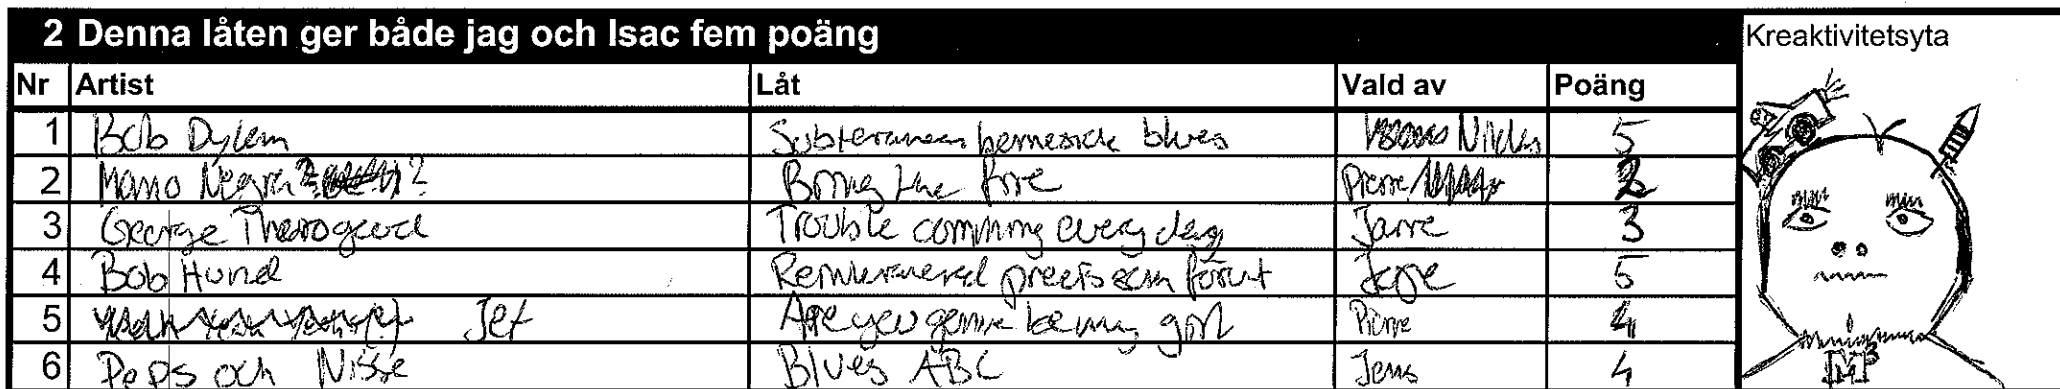 2 Denna låten ger både jag och Isac fem poäng
Kreaktivitetsyta
Nr Artist Låt Vald av Poäng
1 Bob Dylan Subterranean homesick blues Niklas 5
2 Mano Negra ? Bring the fire Pierre 2
3 George Thorogood Trouble comming every day Janne 3
4 Bob Hund precis som förut Jeppe 5
5 Jet Are you gonna be my girl Pierre 4
6 Peps och Nisse Blues ABC Jens 4